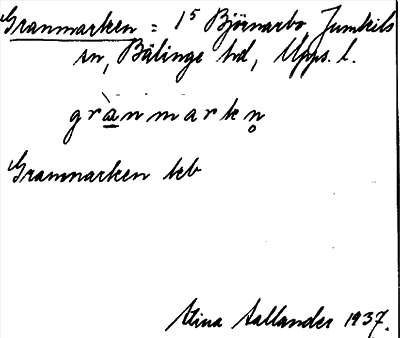 Granmarken = 1⁵ Björnarbo Jumkils
sn, Bälinge hd, Upps. l.
grànmarkn̥
Granmarken beb
Stina Sallander 1937.